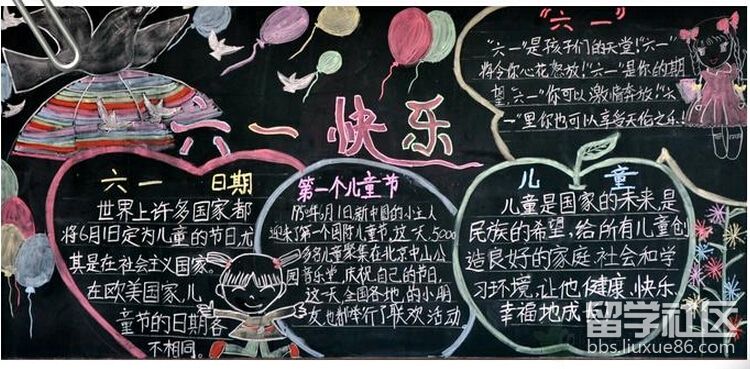 六一快乐
"六一"
"六一"是孩子们的天堂!"六一"
将令你心花怒放!"六一"是你的期
望,"六一"你可以激情奔放!"六
一"里你也可以享受天伦之乐!
六一 日期
世界上许多国家都
将6月1日定为儿童的节日,尤
其是在社会主义国家。
在欧美国家,儿
童节的日期各
不相同。
第一个儿童节
1950年6月1日新中国的小主人
迎来了第一个国际儿童节,这一天,5000
多名儿童聚集在北京中山公
园音乐堂,庆祝自己的节日,
这一天,全国各地的小朋
友也都举行了联欢活动
儿童
儿童是国家的未来,是
民族的希望,给所有儿童创
造良好的家庭、社会和学
习环境,让他 健康、快乐、
幸福地成长
留学社区
bbs.liuxue86.com